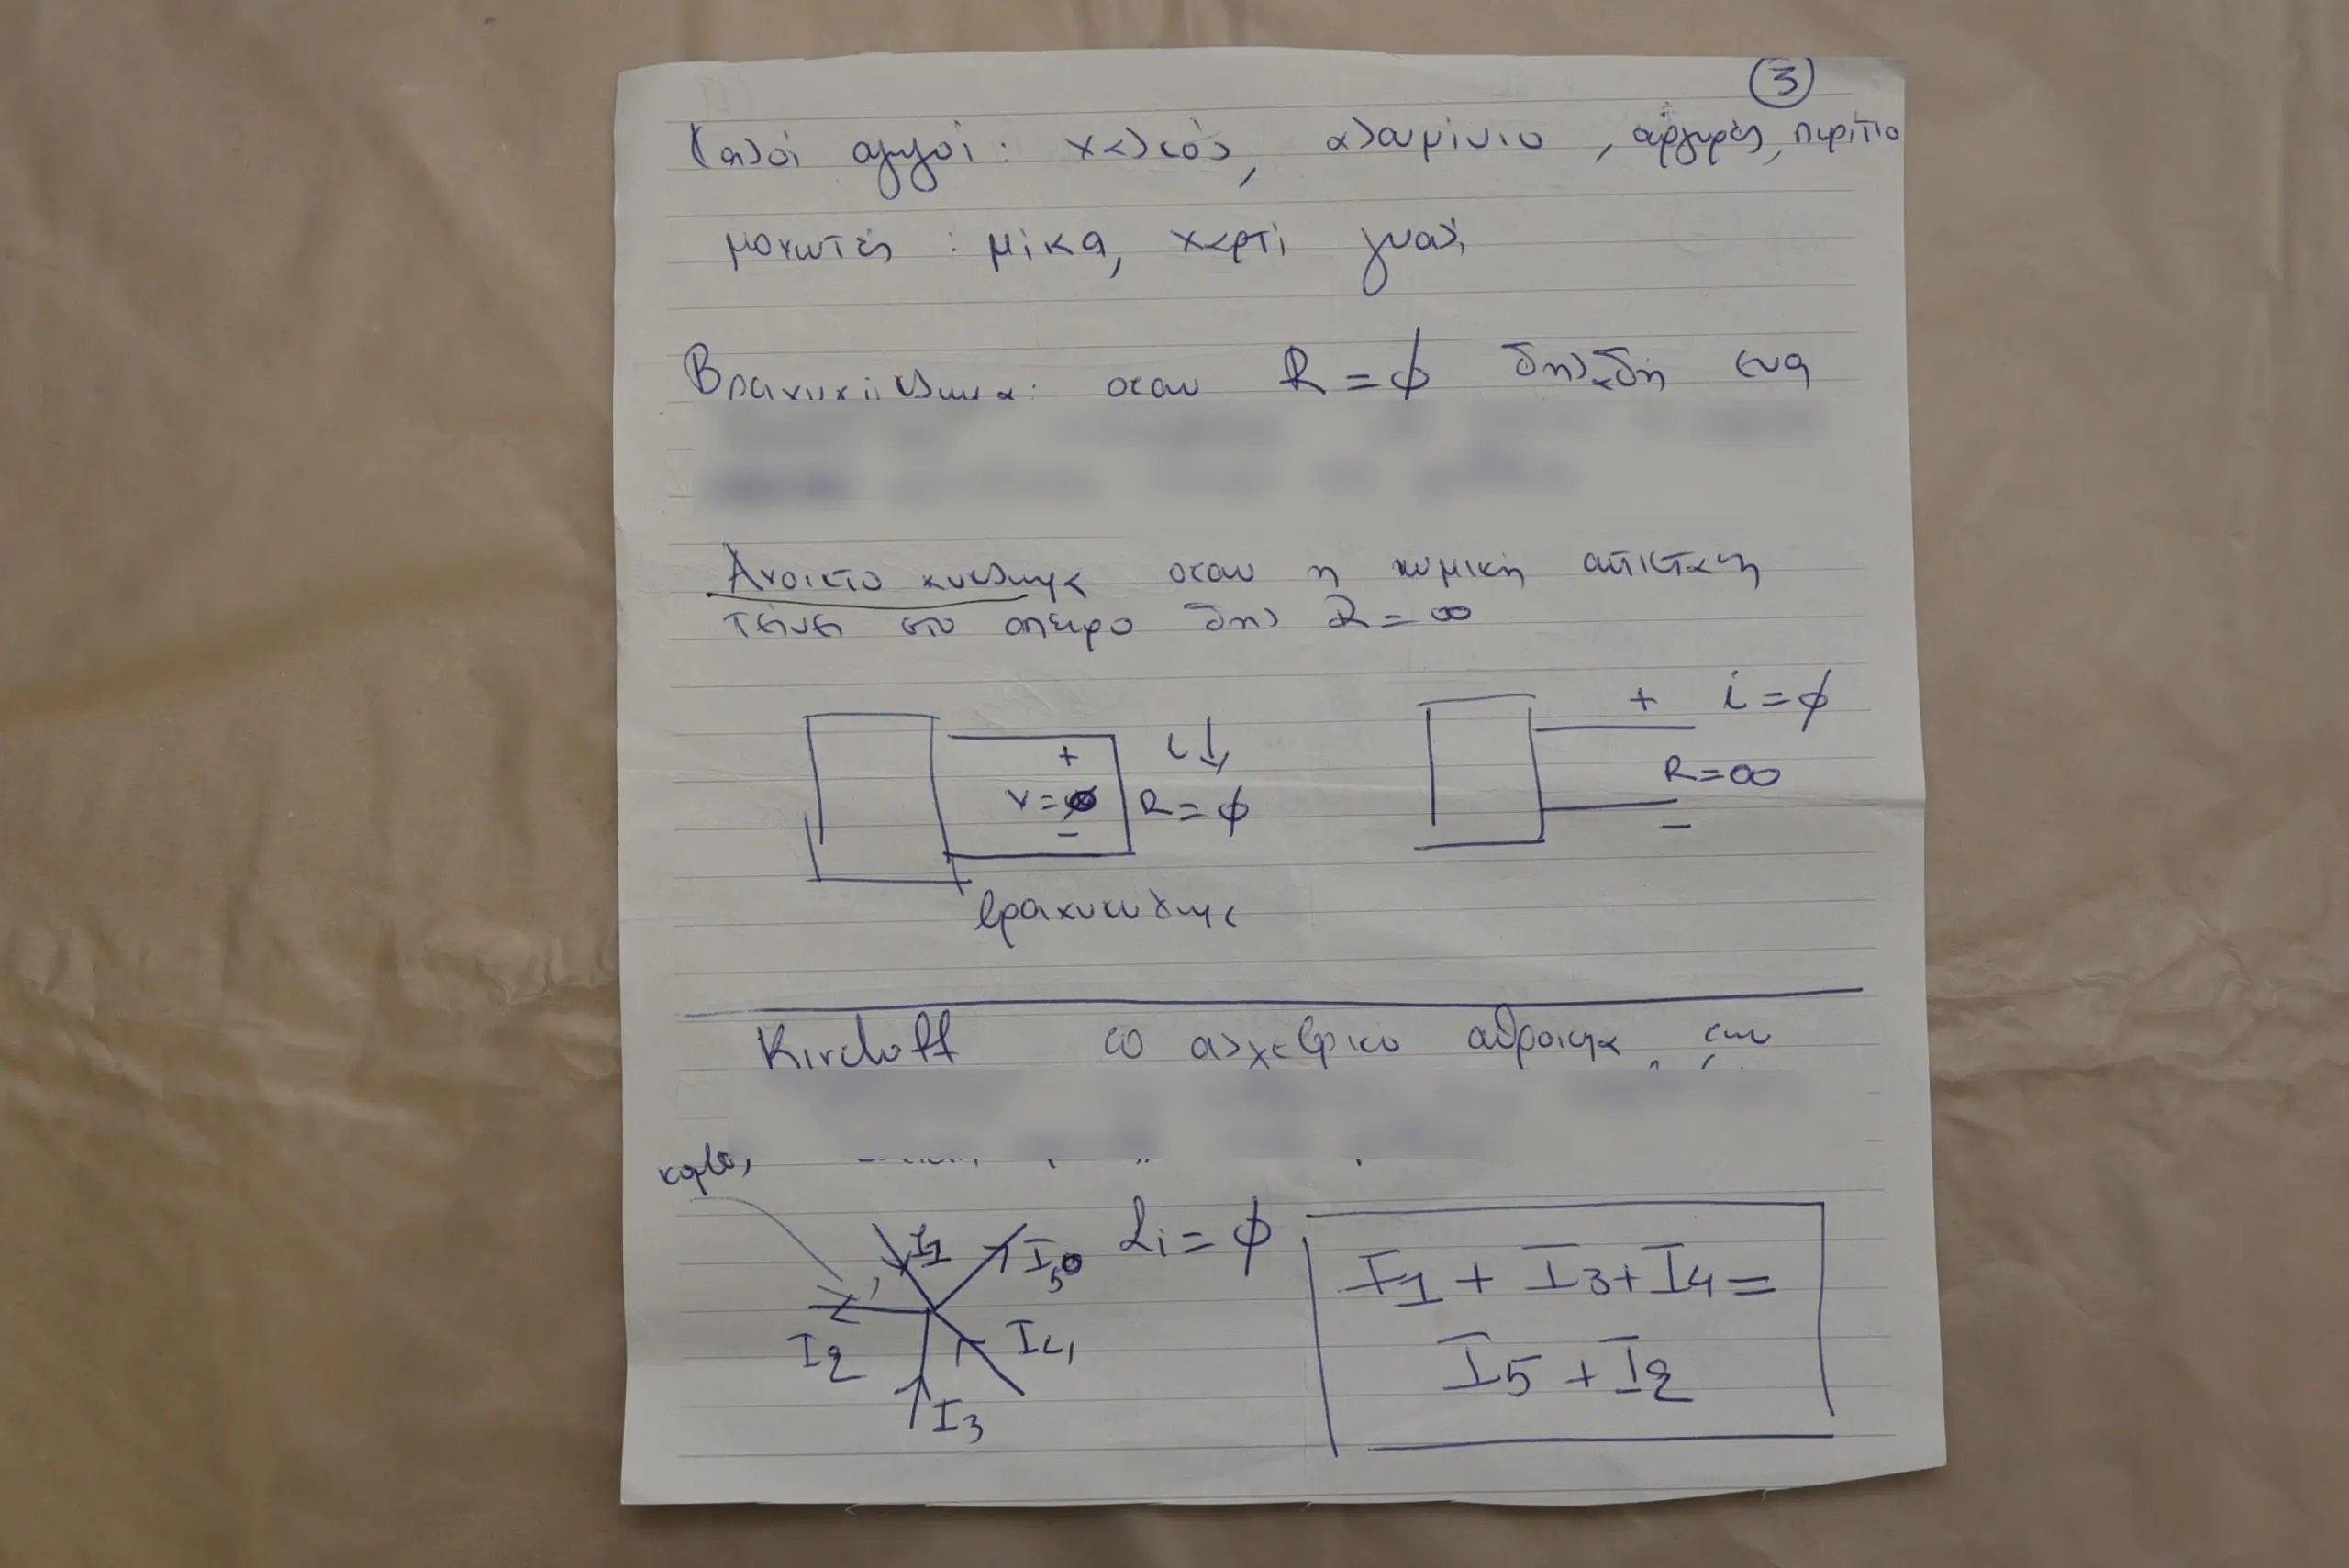 3
Καλοί αγωγοί: χαλκός, αλουμίνιο, άργυρος, πυρίτιο
μονωτές: μίκα, χαρτί γυαλί
Βραχυκύκλωμα: οταν R=φ δηλαδή ενα
Ανοικτο κυκλωμα οταν η ωμική αντίσταση
τείνει στο απειρο δηλ R=∞
+ i=φ
+ i
R=∞
V=φ R=φ
-
-
βραχυκυκλωμα
Kirchoff το αλγεβρικο αθροισμα
κομβος
I1 I5 Σi=φ
I1 + I3 + I4 =
I2 I4
I5 + I2
I3